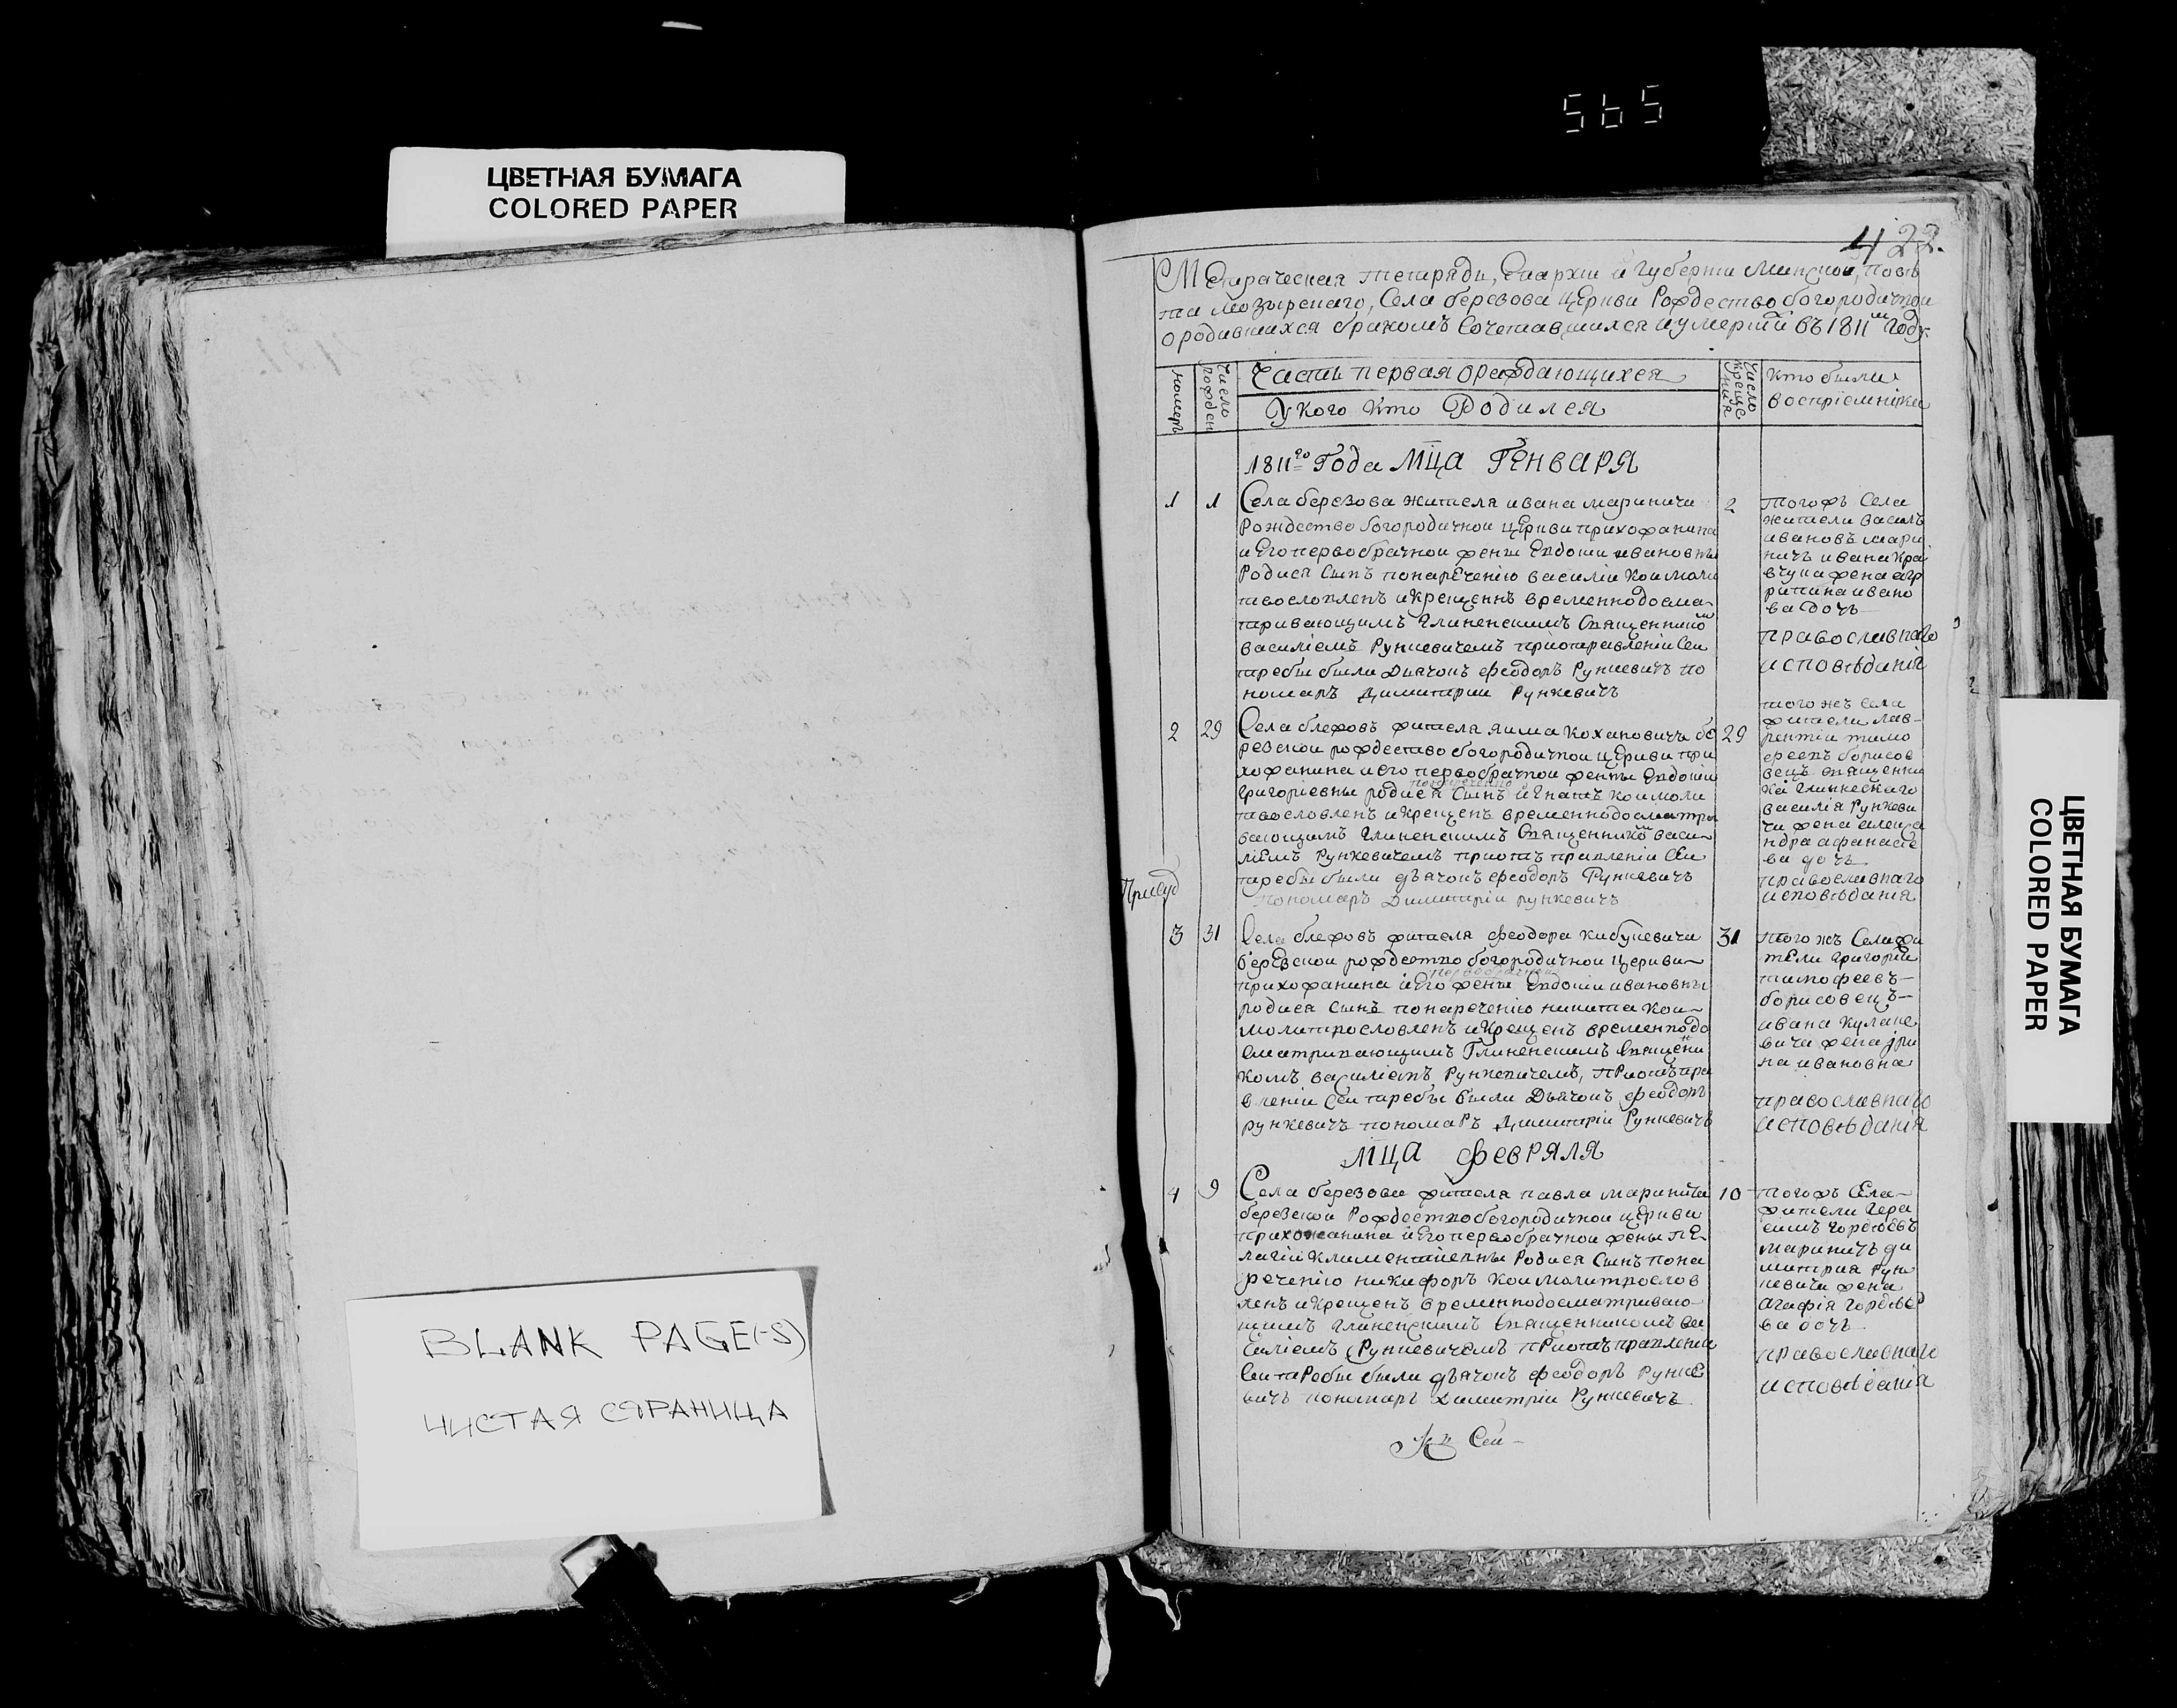 565
ЦВЕТНАЯ БУМАГА
COLORED PAPER
BLANK PAGE(-S)
ЧИСТАЯ СТРАНИЦА
422.
Метрическая тетради, Епархіи и Губерніи Минской, пове
та Мозырскаго, Села березова Церкви Рождество богородичной
о родившихся бракомъ Сочетавшихся и умершихъ въ 1811м Году.
номеръ
Число рожден
Часть первая о раждающихся
У кого кто Родился
Число крещения
кто были
воспріемники
1811го Года Мца Генваря
1 1
Села березова жителя ивана маринича
Рождество богородичной церкви прихожанина
и Его первобрачной жены Евдокіи ивановны
Родися Сынъ по наречению василіи кои моли
твословленъ и крещеннъ временно досма
тривающимъ Глиненскимъ Священникомъ
василіемъ Рункевичемъ при отправленіи Сеи
требы были Дьячокъ феодоръ Рункевичъ по
номаръ Димитрии Рункевичъ
2
тогожъ Села
жители василь
ивановъ мари
ничъ ивана кра
вчука жена агр
рипина ивано
ва дочь
православнаго
исповѣданія
2 29
Села блежовъ жителя якима Кохановича бе
резскои рождество богородичной церкви при
хожанина и его первобрачной жены Евдокіи
по наречению
григоріевны родися Сынъ игнатъ кои моли
твословленъ и крещенъ временно досматри
вающимъ Глиненскимъ Священникомъ васи
ліемъ Рункевичемъ при отъправленіи Сеи
требы были дьячокъ феодоръ Рункевичъ
пономаръ Димитріи рункевичъ
29
того жъ Села
жители лав
рентіи тимо
феевъ борисов
вецъ священни
ка Глинескаго
василія Рункеви
ча жена алекса
ндра афанасіе
ва дочъ
православнаго
исповѣданія
3 31
Села блежовъ жителя феодора кибукевича
березскои рождество богородичной церкви
первобрачной
прихожанина и Его жены Евдокіи ивановны
родися Сынъ по наречению никита кои
молитвословленъ и крещенъ временно до
сматривающимъ Глиненскимъ Священи
комъ василіемъ Рункевичемъ, при отъпра
вленіи Сеи требы были Дьячокъ феодоръ
рункевичъ пономаръ Димитріи Рункевичъ
31
того жъ Села жи
тели григорій
тимофеевъ
борисовецъ
ивана
жена ири
на ивановна
православнаго
исповѣданія
МЦА февраля
4 9
Села березова жителя павла маринича
березской Рождество богородичной церкви
прихожанина и Его первобрачной жены пе
лагіи Климентиевны Родися Сынъ по на
речению никифоръ кои молитвослов
ленъ и крещенъ временно досматриваю
щимъ глиненскимъ Священникомъ ва
силіемъ Рункевичемъ при отъправлении
Сеи требы были дьячокъ феодоръ Рунке
вичъ пономаръ Димитріи Рункевичъ
10
тогожъ Села
жители Гера
симъ Гордѣевъ
мариничъ ди
митрия Рун
кевича жена
агафія Гордѣе
ва дочъ
православнаго
исповѣданія
Сеи
ЦВЕТНАЯ БУМАГА
COLORED PAPER